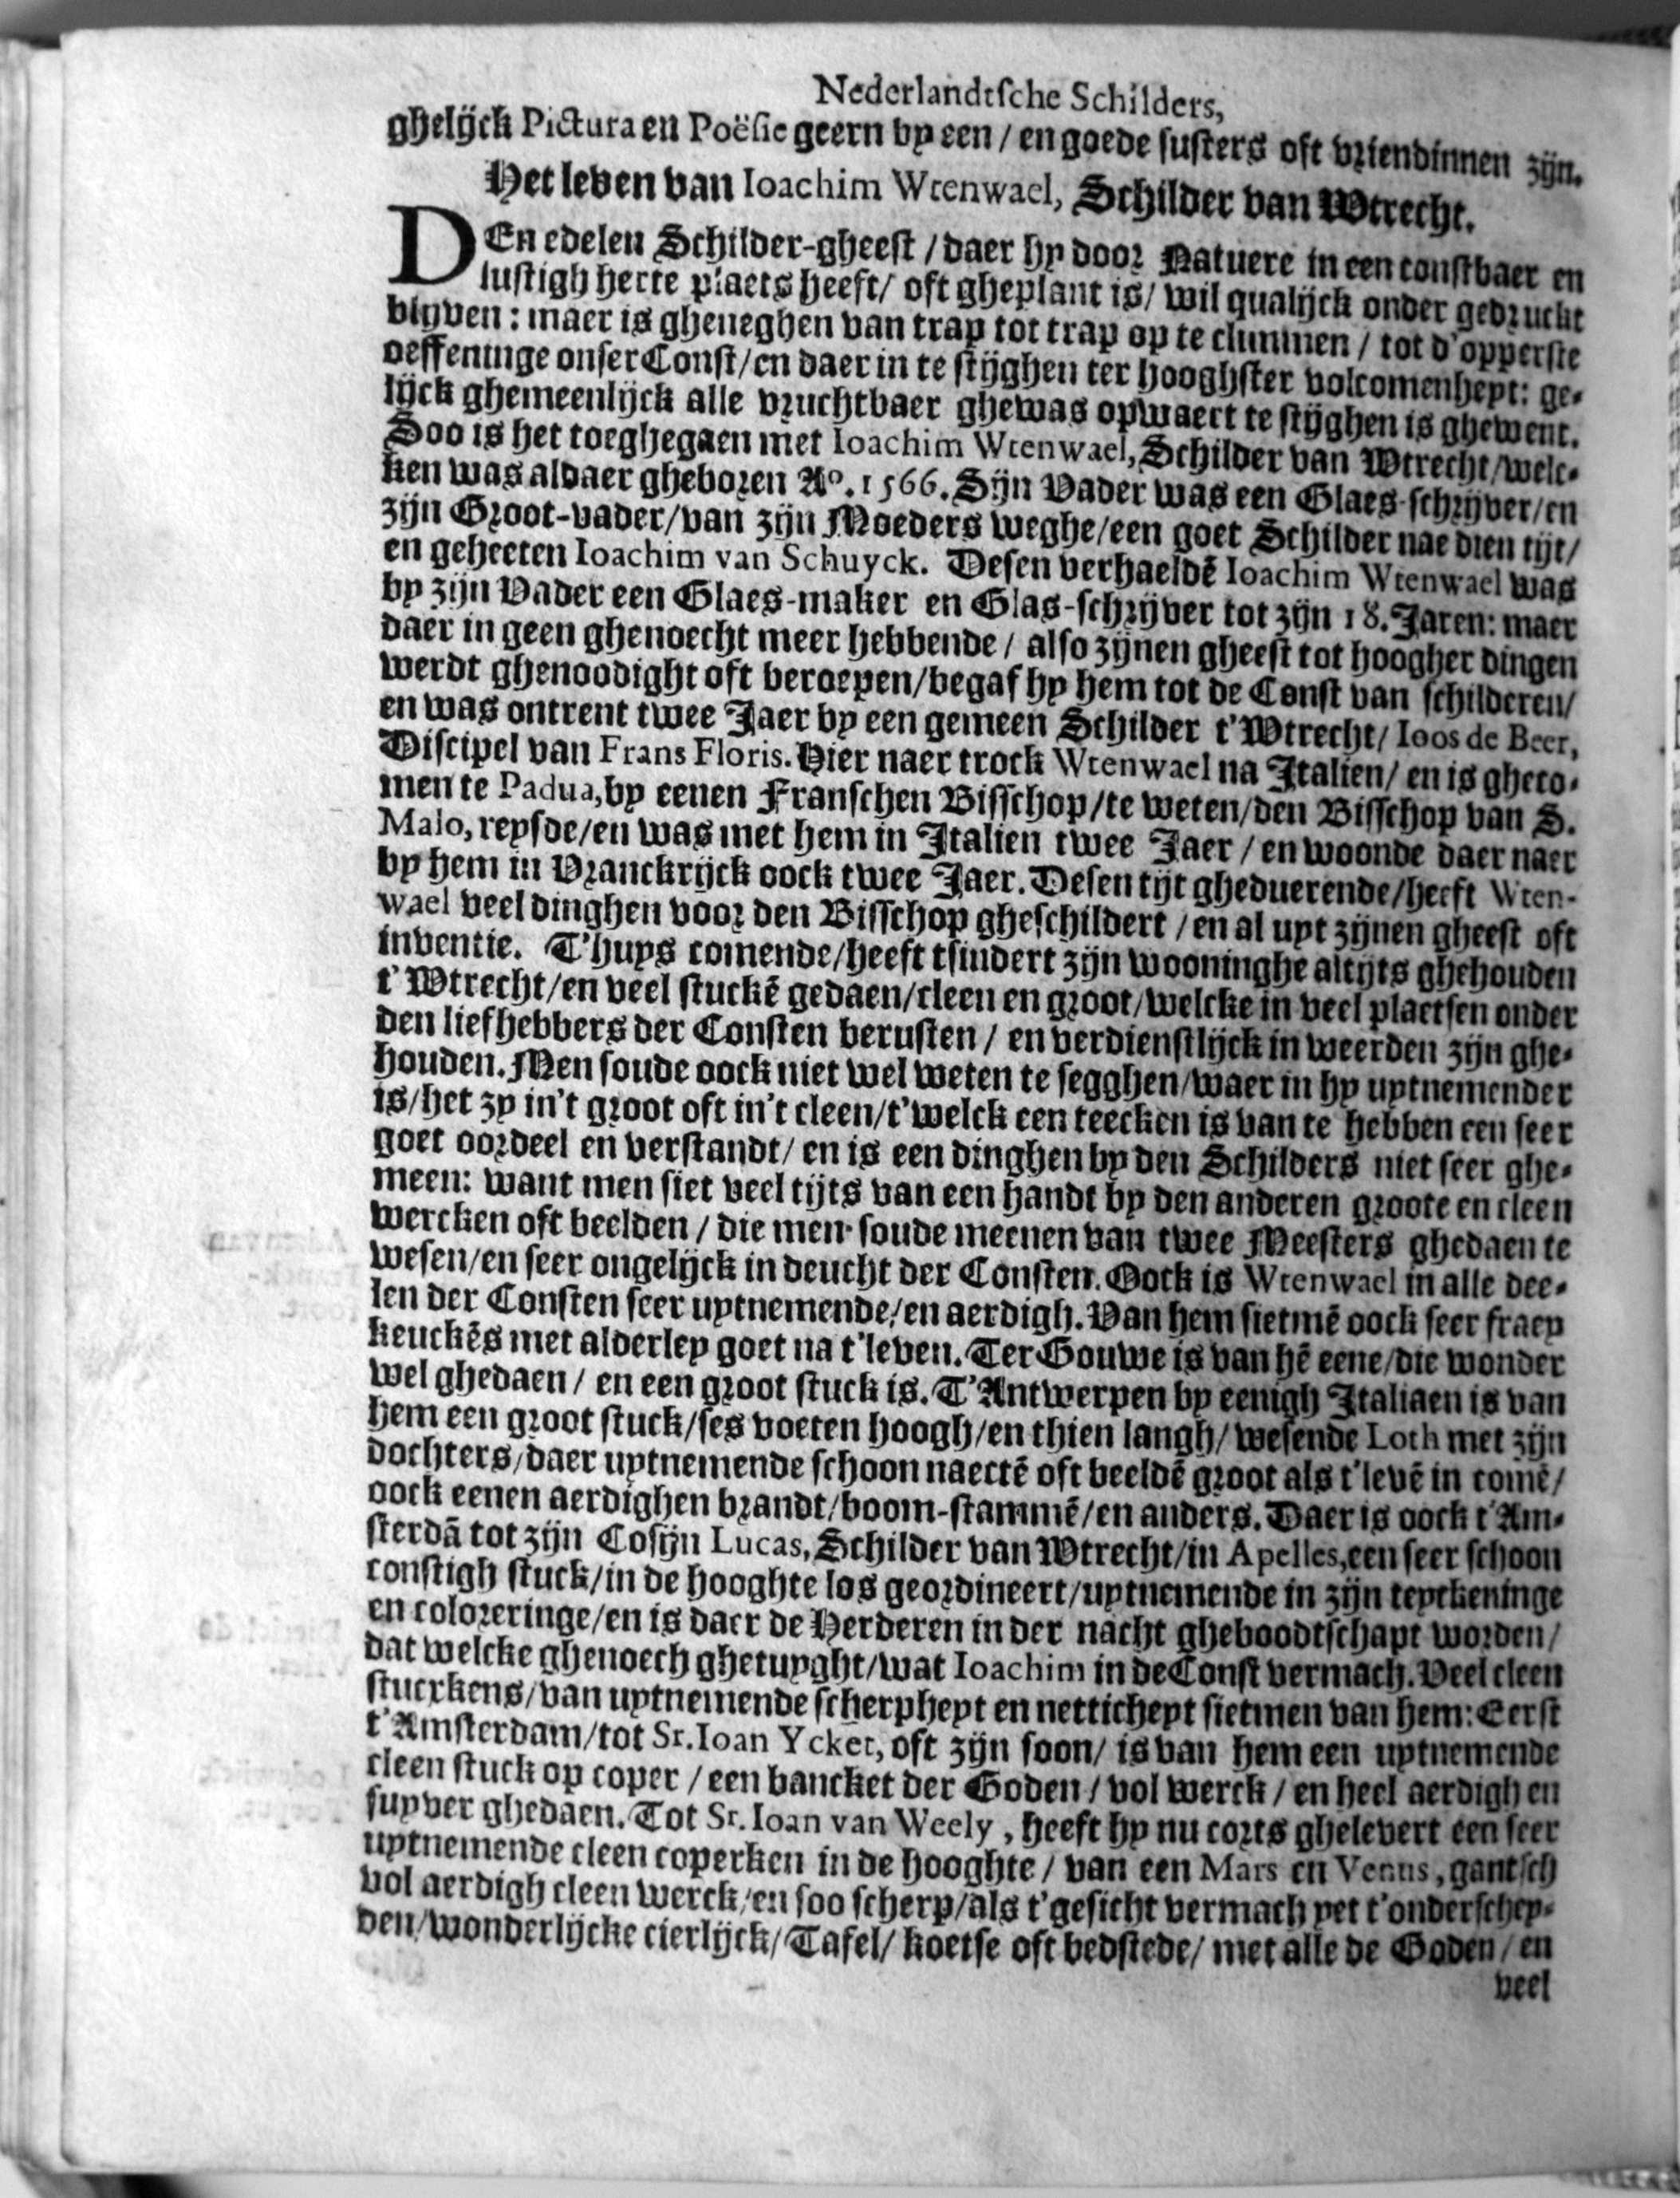 Nederlandtsche Schilders,
ghelijck Pictura en Poësie geern by een / en goede susters oft vriendinnen zijn.
Het leven van Ioachim Wtenwael, Schilder van Wtrecht.
DEn edelen Schilder-gheest / daer hy door Natuere in een constbaer en
lustigh herte plaets heeft / oft gheplant is / wil qualijck onder gedruckt
blyven : maer is gheneghen van trap tot trap op te climmen / tot d'opperste
oeffeninge onser Const / en daer in te stijghen ter hooghster volcomenheyt: ge-
lijck ghemeenlijck alle vruchtbaer ghewas opwaert te stijghen is ghewent.
Soo is het toeghegaen met Ioachim Wtenwael, Schilder van Wtrecht / welc-
ken was aldaer gheboren Aº. 1566. Sijn Vader was een Glaes-schrijver / en
zijn Groot-vader / van zijn Moeders weghe / een goet Schilder nae dien tijt /
en geheeten Ioachim van Schuyck. Desen verhaeldē Ioachim Wtenwael was
by zijn Vader een Glaes-maker en Glas-schrijver tot zijn 18. Jaren: maer
daer in geen ghenoecht meer hebbende / also zijnen gheest tot hoogher dingen
werdt ghenoodight oft beroepen / begaf hy hem tot de Const van schilderen /
en was ontrent twee Jaer by een gemeen Schilder t'Wtrecht / Ioos de Beer,
Discipel van Frans Floris. Hier naer trock Wtenwael na Italien / en is gheco-
men te Padua, by eenen Franschen Bisschop / te weten / den Bisschop van S.
Malo, reysde / en was met hem in Italien twee Jaer / en woonde daer naer
by hem in Vranckrijck oock twee Jaer. Desen tijt gheduerende / heeft Wten-
wael veel dinghen voor den Bisschop gheschildert / en al uyt zijnen gheest oft
inventie. T'huys comende / heeft tsindert zijn wooninghe altijts ghehouden
t'Wtrecht / en veel stuckē gedaen / cleen en groot / welcke in veel plaetsen onder
den liefhebbers der Consten berusten / en verdienstlijck in weerden zijn ghe-
houden. Men soude oock niet wel weten te segghen / waer in hy uytnemender
is / het zy in't groot oft in't cleen / t'welck een teecken is van te hebben een seer
goet oordeel en verstandt / en is een dinghen by den Schilders niet seer ghe-
meen: want men siet veel tijts van een handt by den anderen groote en cleen
wercken oft beelden / die men soude meenen van twee Meesters ghedaen te
wesen / en seer ongelijck in deucht der Consten. Oock is Wtenwael in alle dee-
len der Consten seer uytnemende / en aerdigh. Van hem sietmē oock seer fraey
keuckēs met alderley goet na t'leven. Ter Gouwe is van hē eene / die wonder
wel ghedaen / en een groot stuck is. T'Antwerpen by eenigh Italiaen is van
hem een groot stuck / ses voeten hoogh / en thien langh / wesende Loth met zijn
dochters / daer uytnemende schoon naectē oft beeldē groot als t'levē in comē /
oock eenen aerdighen brandt / boom-stammē / en anders. Daer is oock t'Am-
sterdā tot zijn Cosijn Lucas, Schilder van Wtrecht / in Apelles, een seer schoon
constigh stuck / in de hooghte los geordineert / uytnemende in zijn teyckeninge
en coloreringe / en is daer de Herderen in der nacht gheboodtschapt worden /
dat welcke ghenoech ghetuyght / wat Ioachim in de Const vermach. Veel cleen
stucxkens / van uytnemende scherpheyt en netticheyt sietmen van hem: Eerst
t'Amsterdam / tot Sr. Ioan Ycket, oft zijn soon / is van hem een uytnemende
cleen stuck op coper / een bancket der Goden / vol werck / en heel aerdigh en
suyver ghedaen. Tot Sr. Ioan van Weely, heeft hy nu corts ghelevert een seer
uytnemende cleen coperken in de hooghte / van een Mars en Venus, gantsch
vol aerdigh cleen werck / en soo scherp / als t'gesicht vermach yet t'onderschey-
den / wonderlijcke cierlijck / Tafel / koetse oft bedstede / met alle de Goden / en
veel